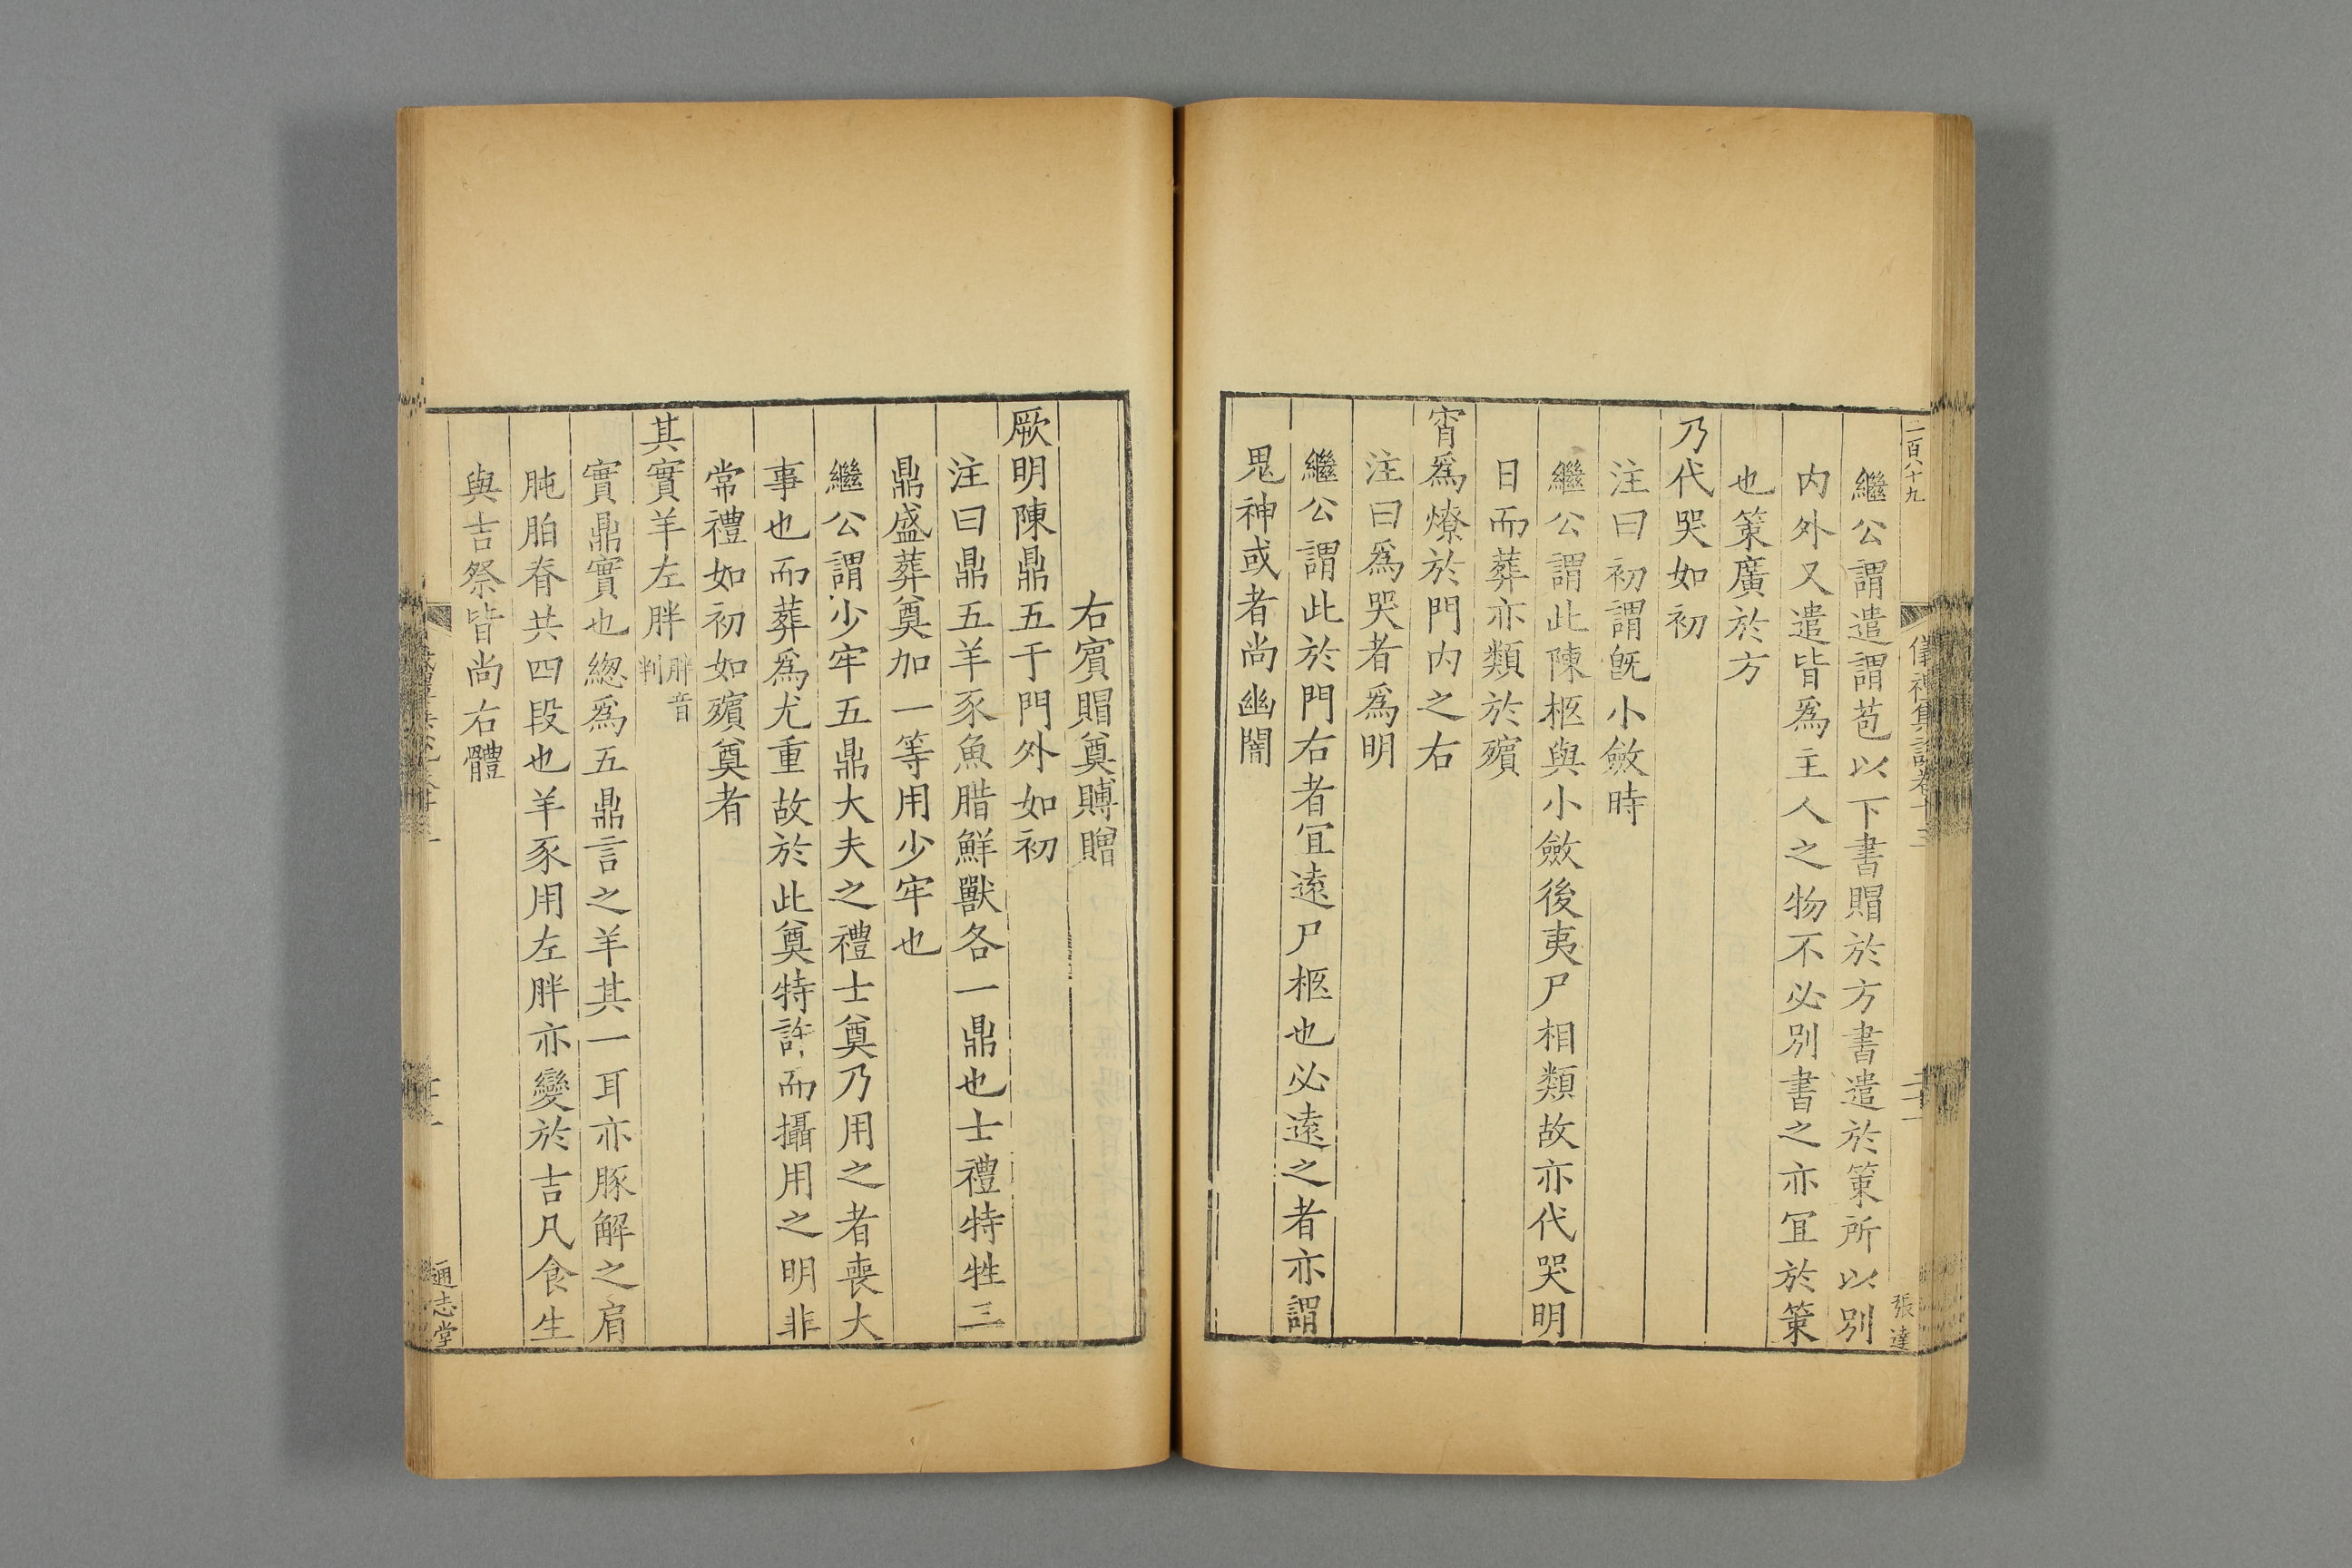 二百八十九
張達
繼公謂遣謂苞以下書賵於方書遣於策所以別
内外又遣皆爲主人之物不必別書之亦冝於策
也策廣於方
乃代哭如初
注曰初謂旣小斂時
繼公謂此陳柩與小斂後夷尸相類故亦代哭明
日而葬亦類於殯
宵爲燎於門内之右
注曰爲哭者爲明
繼公謂此於門右者冝遠尸柩也必遠之者亦謂
鬼神或者尚幽闇
右賓賵奠賻贈
厥明陳鼎五于門外如初
注曰鼎五羊豕魚腊鮮獸各一鼎也士禮特牲三
鼎盛葬奠加一等用少牢也
繼公謂少牢五鼎大夫之禮士奠乃用之者喪大
事也而葬爲尤重故於此奠特許而攝用之明非
常禮如初如殯奠者
其實羊左胖胖音判
實鼎實也緫爲五鼎言之羊其一耳亦豚解之肩
肫胉脊共四段也羊豕用左胖亦變於吉凡食生
與吉祭皆尚右體
通志堂